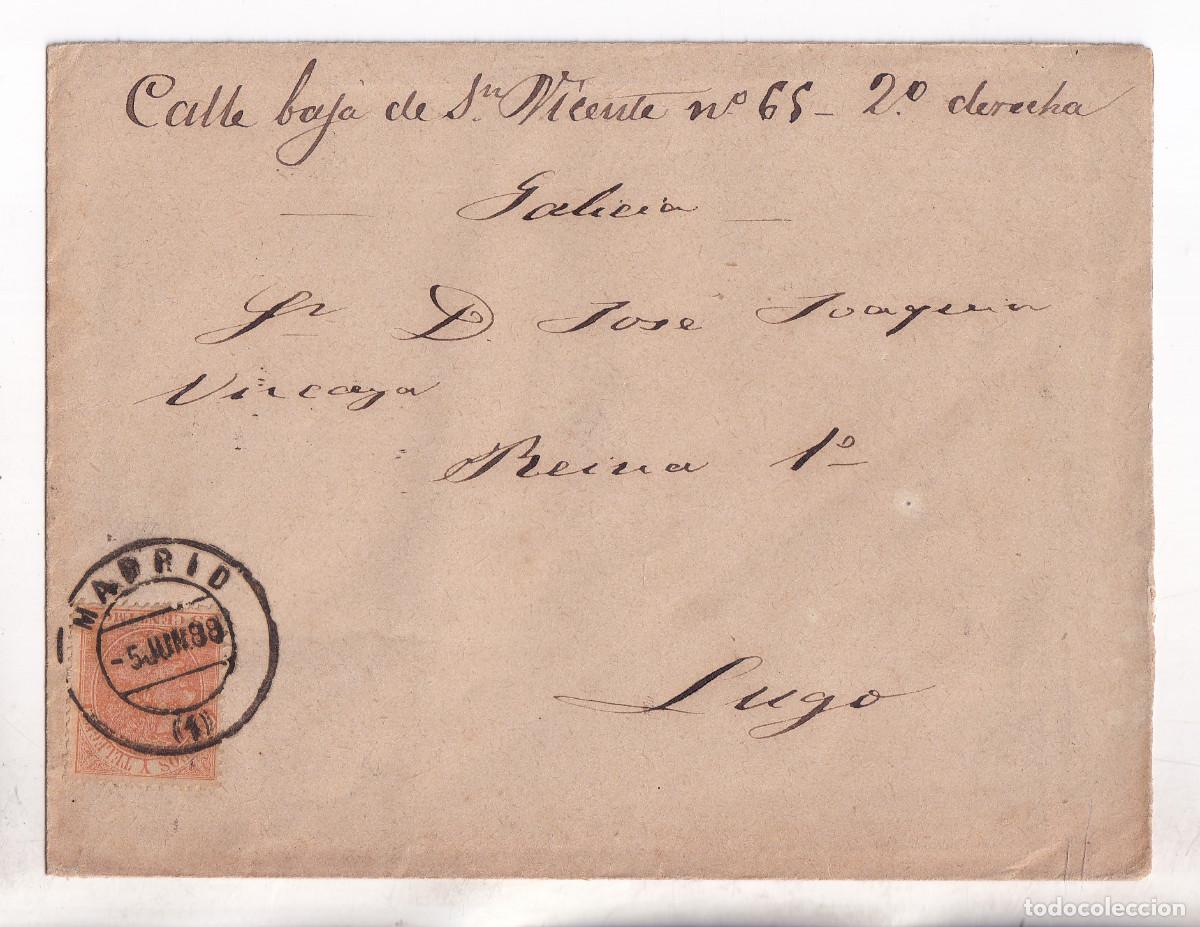 Calle baja de Sn. Vicente nº 65 - 2.º derecha
— Galicia —
Sr. D. José Joaquin
Vizcaya
Reina 1º
Lugo
MADRID
-5JUN.88
(1)
todocoleccion